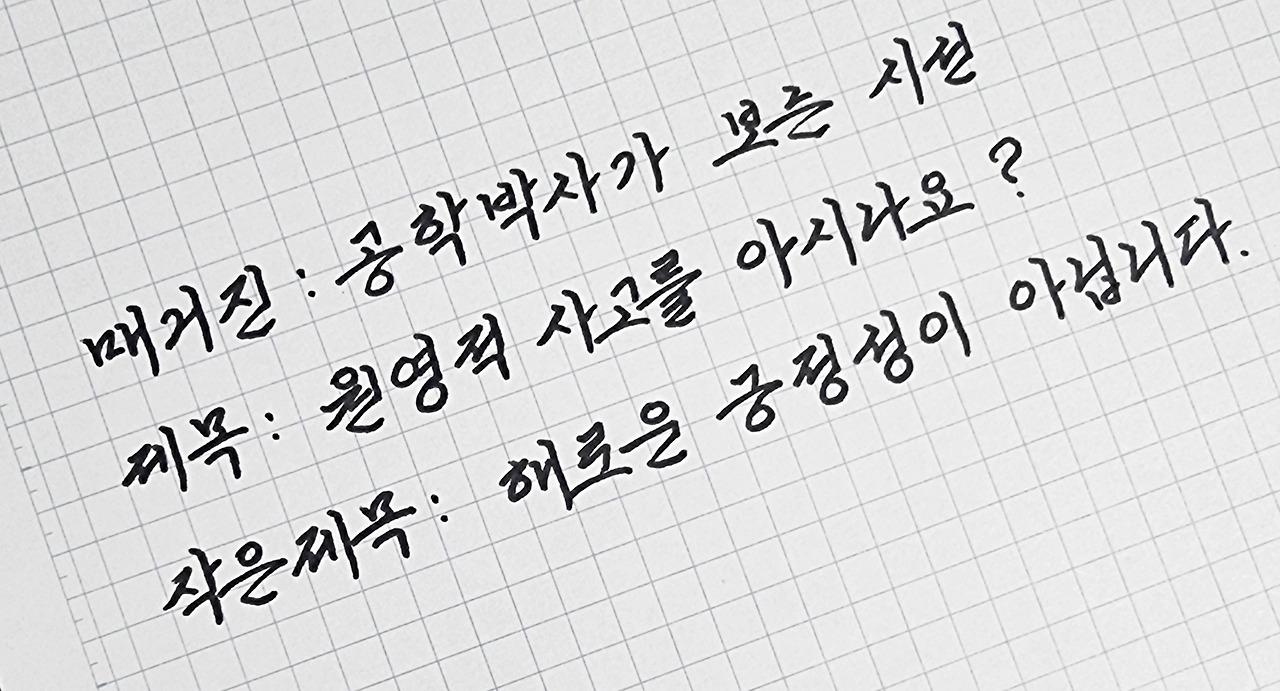 매거진: 공학박사가 보는 시선
제목: 원영적 사고를 아시나요?
작은제목: 해로운 긍정성이 아닙니다.